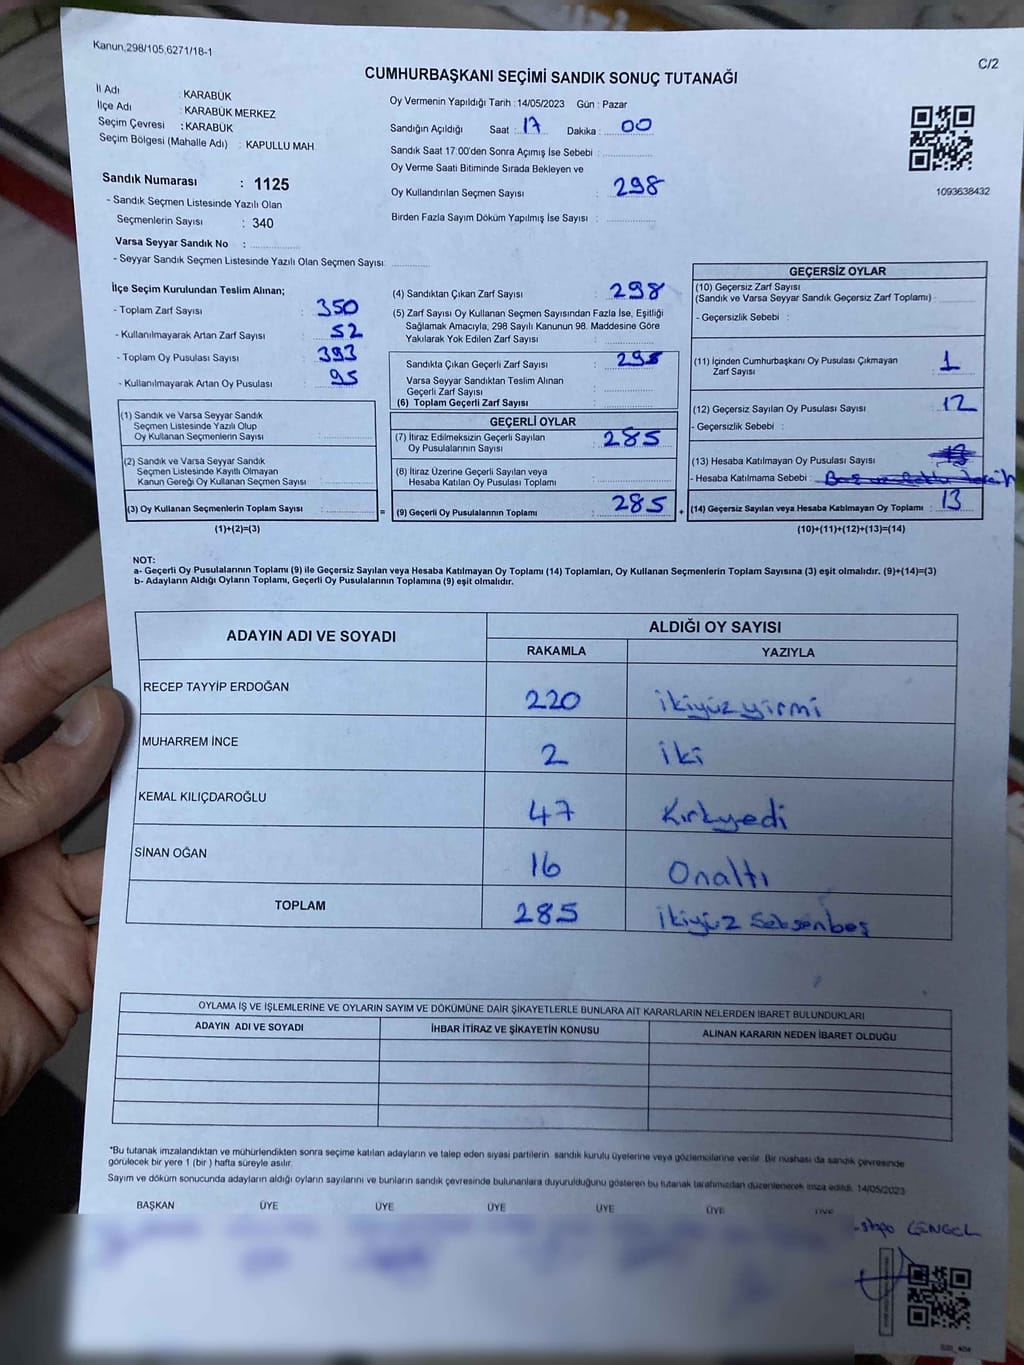 Kanun,298/105,6271/18-1
C/2
CUMHURBAŞKANI SEÇİMİ SANDIK SONUÇ TUTANAĞI
İl Adı : KARABÜK
İlçe Adı : KARABÜK MERKEZ
Seçim Çevresi : KARABÜK
Seçim Bölgesi (Mahalle Adı) : KAPULLU MAH.
Sandık Numarası : 1125
- Sandık Seçmen Listesinde Yazılı Olan
Seçmenlerin Sayısı : 340
Varsa Seyyar Sandık No :
- Seyyar Sandık Seçmen Listesinde Yazılı Olan Seçmen Sayısı:
Oy Vermenin Yapıldığı Tarih : 14/05/2023 Gün : Pazar
Sandığın Açıldığı Saat : 17 Dakika : 00
Sandık Saat 17:00'den Sonra Açımış İse Sebebi :
Oy Verme Saati Bitiminde Sırada Bekleyen ve
Oy Kullandırılan Seçmen Sayısı : 298
Birden Fazla Sayım Döküm Yapılmış İse Sayısı :
1093638432
İlçe Seçim Kurulundan Teslim Alınan;
- Toplam Zarf Sayısı : 350
- Kullanılmayarak Artan Zarf Sayısı : 52
- Toplam Oy Pusulası Sayısı : 393
- Kullanılmayarak Artan Oy Pusulası : 95
(1) Sandık ve Varsa Seyyar Sandık
Seçmen Listesinde Yazılı Olup
Oy Kullanan Seçmenlerin Sayısı :
(2) Sandık ve Varsa Seyyar Sandık
Seçmen Listesinde Kayıtlı Olmayan
Kanun Gereği Oy Kullanan Seçmen Sayısı :
(3) Oy Kullanan Seçmenlerin Toplam Sayısı :
(1)+(2)=(3)
=
(4) Sandıktan Çıkan Zarf Sayısı : 298
(5) Zarf Sayısı Oy Kullanan Seçmen Sayısından Fazla İse, Eşitliği
Sağlamak Amacıyla, 298 Sayılı Kanunun 98. Maddesine Göre
Yakılarak Yok Edilen Zarf Sayısı :
Sandıkta Çıkan Geçerli Zarf Sayısı : 298
Varsa Seyyar Sandıktan Teslim Alınan
Geçerli Zarf Sayısı :
(6) Toplam Geçerli Zarf Sayısı :
GEÇERLİ OYLAR
(7) İtiraz Edilmeksizin Geçerli Sayılan : 285
Oy Pusulalarının Sayısı
(8) İtiraz Üzerine Geçerli Sayılan veya
Hesaba Katılan Oy Pusulası Toplamı :
(9) Geçerli Oy Pusulalarının Toplamı : 285
+
GEÇERSİZ OYLAR
(10) Geçersiz Zarf Sayısı
(Sandık ve Varsa Seyyar Sandık Geçersiz Zarf Toplamı) :
- Geçersizlik Sebebi :
(11) İçinden Cumhurbaşkanı Oy Pusulası Çıkmayan
Zarf Sayısı : 1
(12) Geçersiz Sayılan Oy Pusulası Sayısı : 12
- Geçersizlik Sebebi :
(13) Hesaba Katılmayan Oy Pusulası Sayısı :
- Hesaba Katılmama Sebebi :
(14) Geçersiz Sayılan veya Hesaba Katılmayan Oy Toplamı : 13
(10)+(11)+(12)+(13)=(14)
NOT:
a- Geçerli Oy Pusulalarının Toplamı (9) ile Geçersiz Sayılan veya Hesaba Katılmayan Oy Toplamı (14) Toplamları, Oy Kullanan Seçmenlerin Toplam Sayısına (3) eşit olmalıdır. (9)+(14)=(3)
b- Adayların Aldığı Oyların Toplamı, Geçerli Oy Pusulalarının Toplamına (9) eşit olmalıdır.
ADAYIN ADI VE SOYADI
ALDIĞI OY SAYISI
RAKAMLA YAZIYLA
RECEP TAYYİP ERDOĞAN 220 ikiyüz yirmi
MUHARREM İNCE 2 iki
KEMAL KILIÇDAROĞLU 47 Kırkyedi
SİNAN OĞAN 16 Onaltı
TOPLAM 285 ikiyüz Seksenbeş
OYLAMA İŞ VE İŞLEMLERİNE VE OYLARIN SAYIM VE DÖKÜMÜNE DAİR ŞİKAYETLERLE BUNLARA AİT KARARLARIN NELERDEN İBARET BULUNDUKLARI
ADAYIN ADI VE SOYADI İHBAR İTİRAZ VE ŞİKAYETİN KONUSU ALINAN KARARIN NEDEN İBARET OLDUĞU
*Bu tutanak imzalandıktan ve mühürlendikten sonra seçime katılan adayların ve talep eden siyasi partilerin sandık kurulu üyelerine veya gözlemcilerine verilir. Bir nüshası da sandık çevresinde
görülecek bir yere 1 (bir ) hafta süreyle asılır.
Sayım ve döküm sonucunda adayların aldığı oyların sayılarını ve bunların sandık çevresinde bulunanlara duyurulduğunu gösteren bu tutanak tarafımızdan düzenlenerek imza edildi. 14/05/2023
BAŞKAN ÜYE ÜYE ÜYE ÜYE ÜYE ÜYE
CENGEL